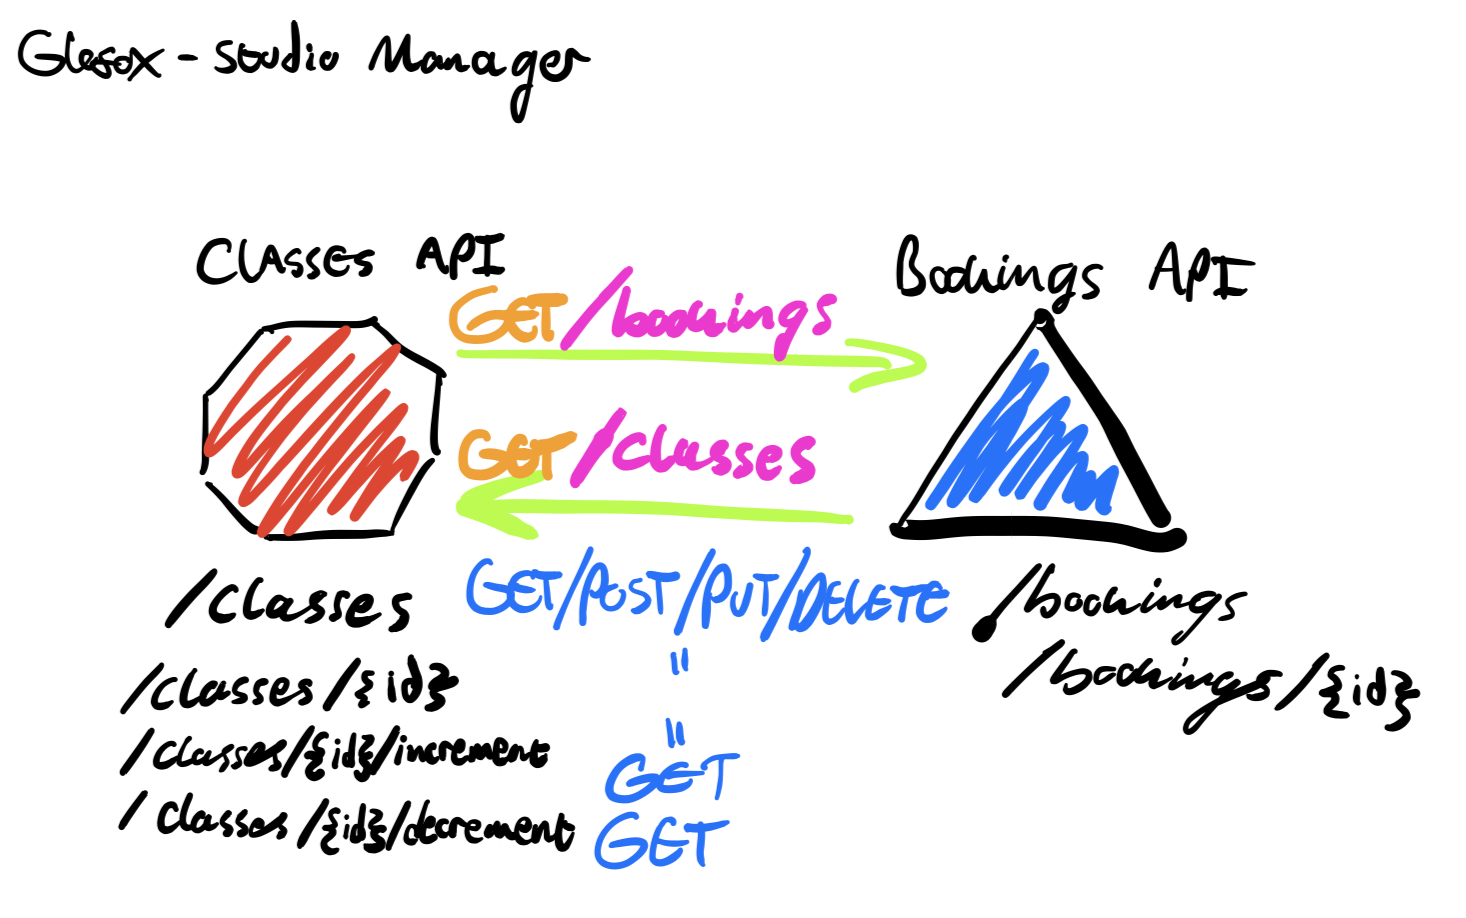 Glesox - Studio Manager
Classes API
Bookings API
GET /bookings
GET /classes
/classes
GET/POST/PUT/DELETE
/bookings
/classes/{id}
"
/bookings/{id}
/classes/{id}/increment
"
GET
/classes/{id}/decrement
GET